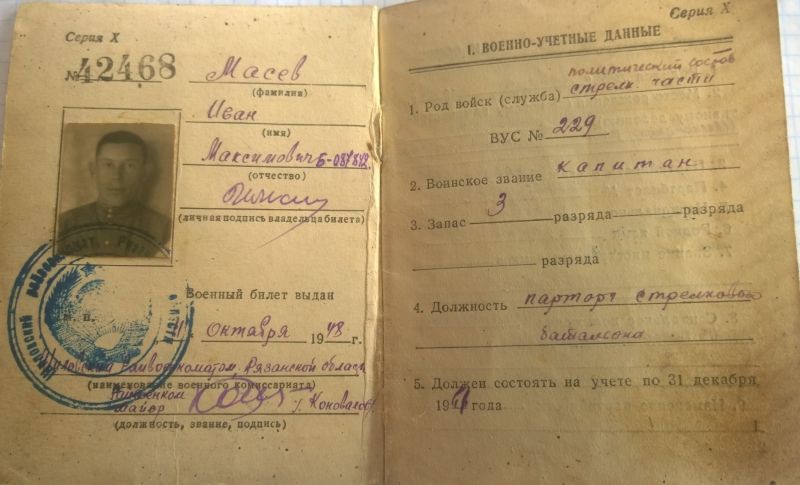 Серия X
№ 42468
Масев
(фамилия)
Иван
(имя)
Максимович Б-081842
(отчество)
(личная подпись владельца билета)
М. П.
Военный билет выдан
октября 1948 г.
Райвоенкоматом, Рязанской области
(наименование военного комиссариата)
майор /. Коновалов/
(должность, звание, подпись)
Серия X
I. ВОЕННО-УЧЕТНЫЕ ДАННЫЕ
политический состав
1. Род войск (служба) стрелк. части
ВУС № 229
2. Воинское звание капитан
3. Запас 3 разряда разряда
разряда
4. Должность парторг стрелкового
батальона
5. Должен состоять на учете по 31 декабря
19 года